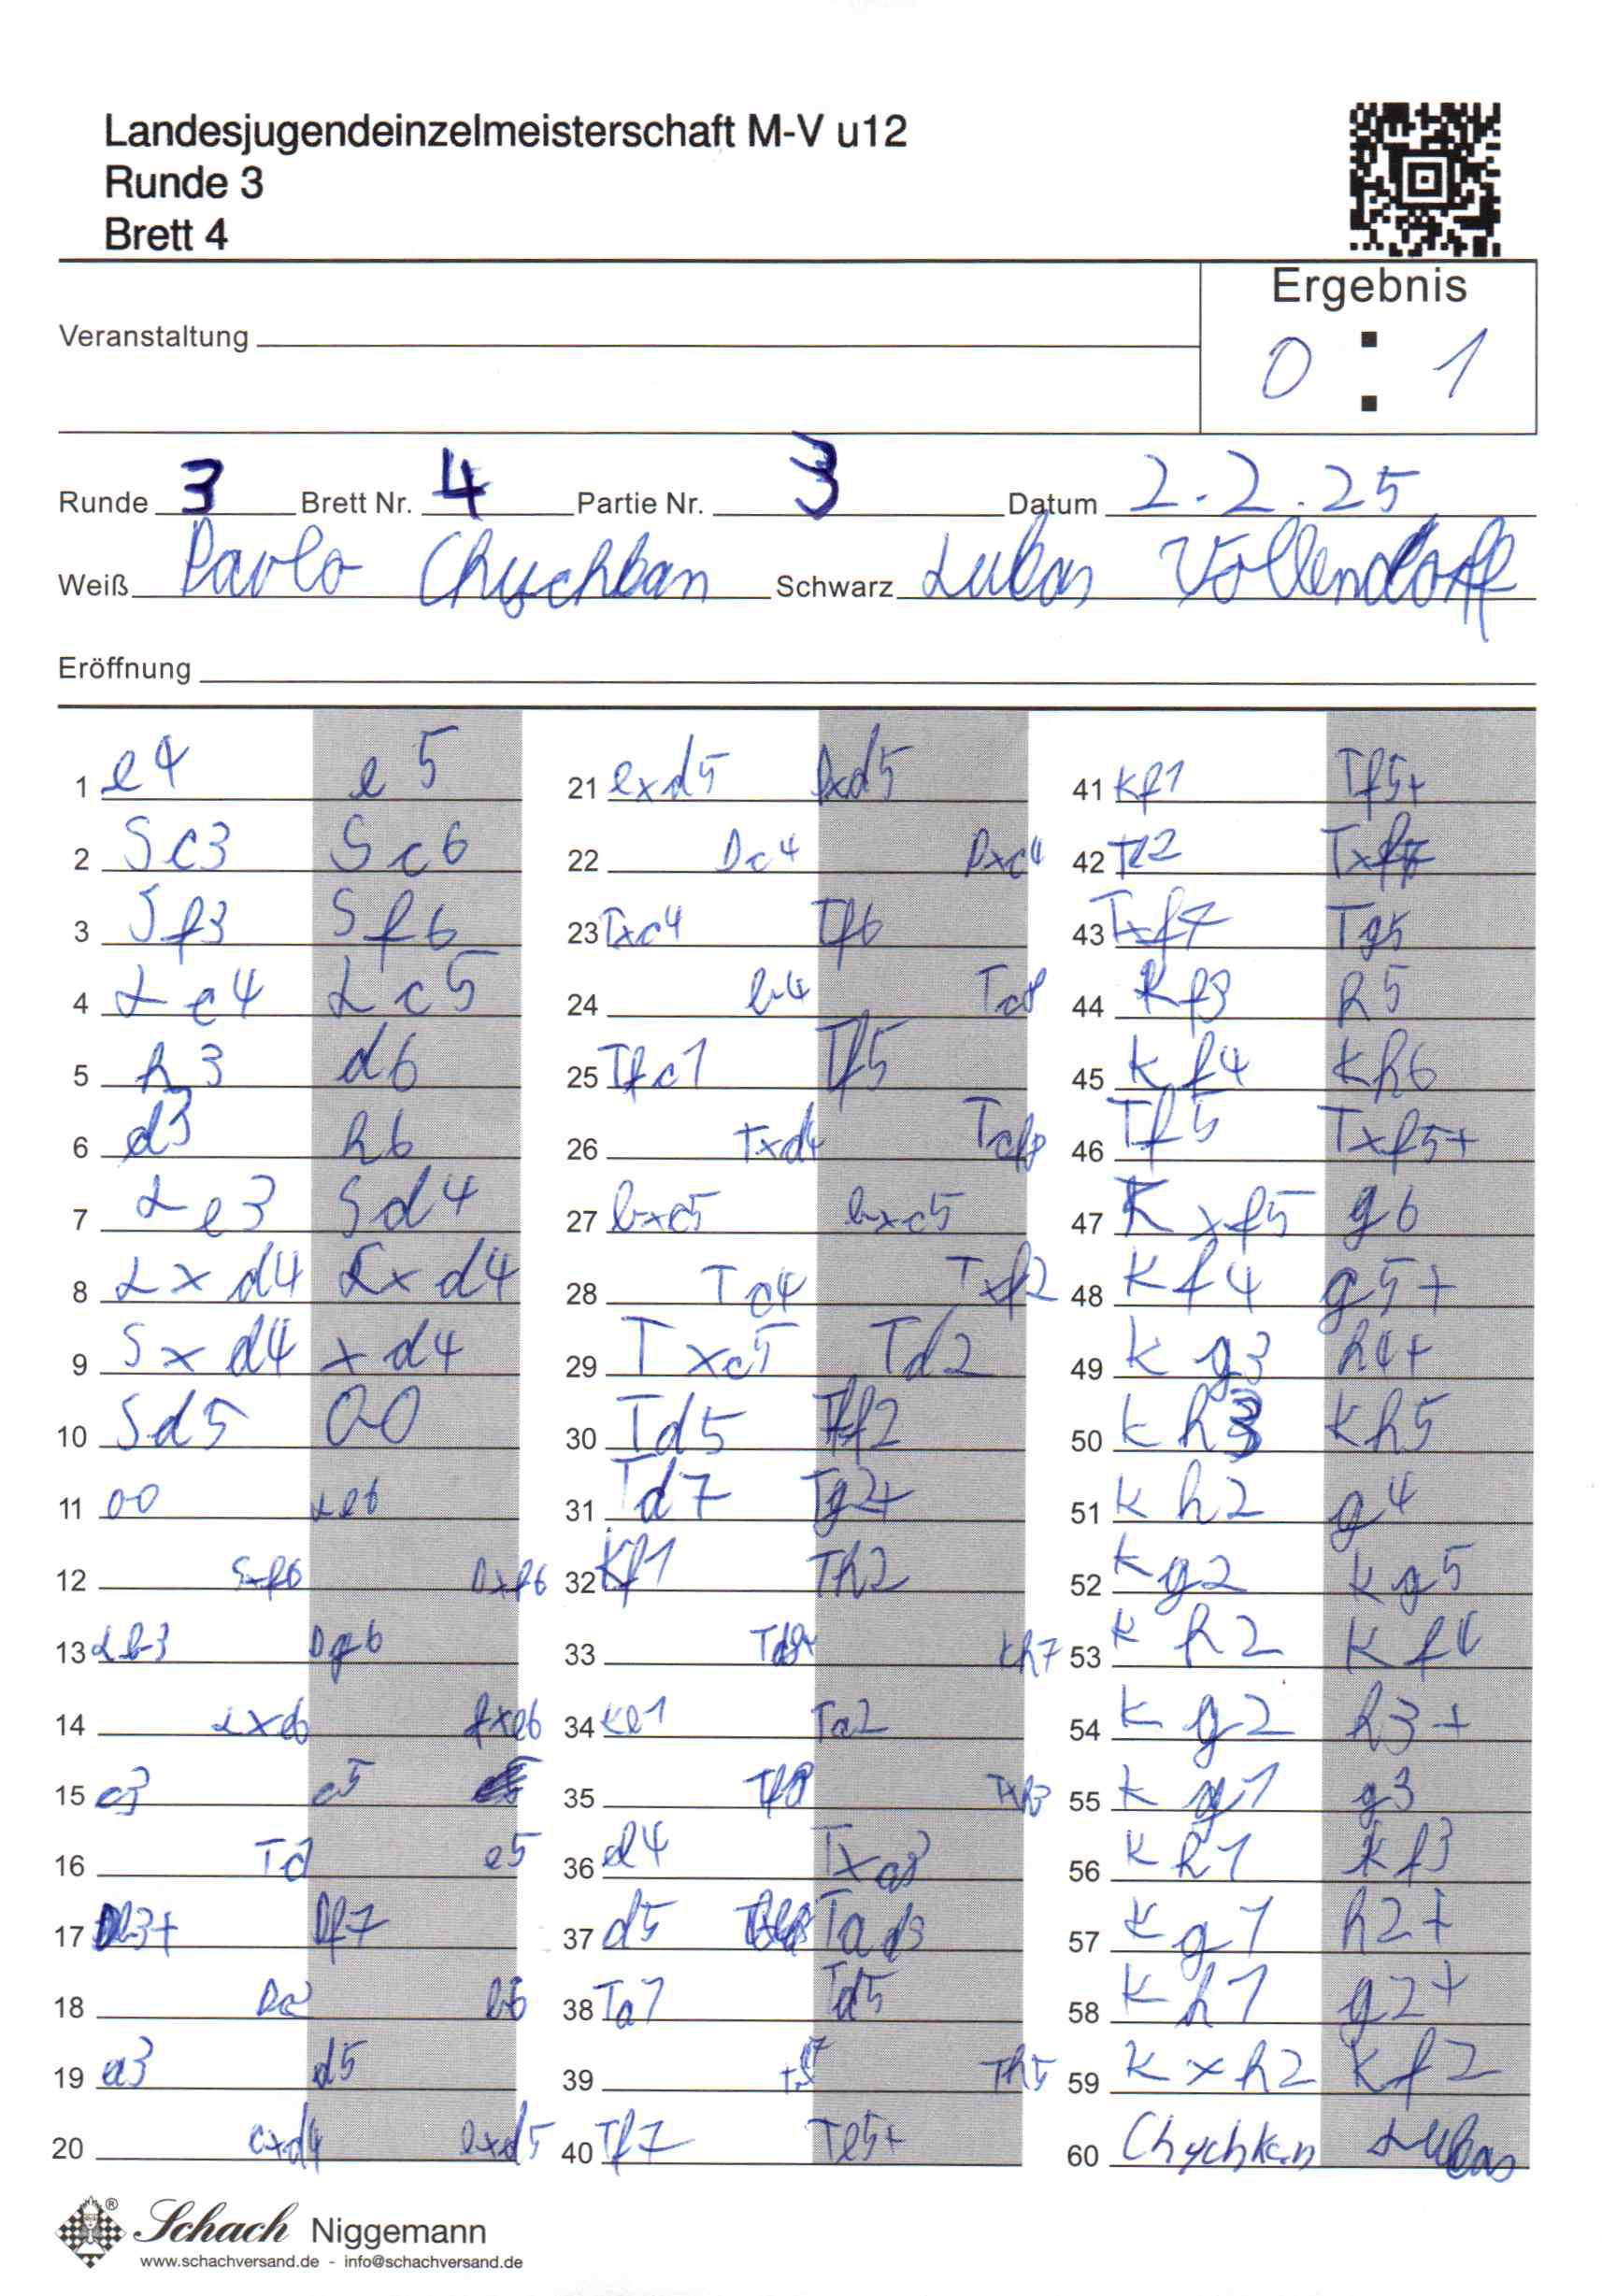 Landesjugendeinzelmeisterschaft M-V u12
Runde 3
Brett 4
Ergebnis
0 : 1
Veranstaltung
Runde 3 Brett Nr. 4 Partie Nr. 3 Datum 2.2.25
Weiß Pavlo Chychkan Schwarz Lukas Vollendorff
Eröffnung
1 e4 e5
2 Sc3 Sc6
3 Sf3 Sf6
4 Lc4 Lc5
5 h3 d6
6 d3 h6
7 Le3 Sd4
8 Lxd4 Lxd4
9 Sxd4 xd4
10 Sd5 0-0
11 0-0 Le6
12 Sxf6 Dxf6
13 Lb3 Dg6
14 Lxe6 fxe6
15 c3 c5
16 Tc1 e5
17 Db3+ Df7
18 Dc2 b6
19 a3 d5
20 cxd4 exd5
21 exd5 Dxd5
22 Dc4 Dxc4
23 Txc4 Tf6
24 b4 Tc8
25 Tfc1 Tf5
26 Txd4 Tcf8
27 bxc5 bxc5
28 Tc4 Txf2
29 Txc5 Td2
30 Td5 Tff2
31 Td7 Tg2+
32 Kf1 Th2
33 Td8+ Kh7
34 Ke1 Ta2
35 Tf8 Txh3
36 d4 Txa3
37 d5 Tad3
38 Ta1 Td5
39 Th5
40 Tf7 Te5+
41 Kf1 Tf5+
42 Tf2 Txf7
43 Txf7 Tg5
44 Kf3 h5
45 Kf4 Kh6
46 Tf5 Txf5+
47 Kxf5 g6
48 Kf4 g5+
49 Kg3 h4+
50 Kh3 Kh5
51 Kh2 g4
52 Kg2 Kg5
53 Kh2 Kf4
54 Kg2 h3+
55 Kg1 g3
56 Kh1 Kf3
57 Kg1 h2+
58 Kh1 g2+
59 Kxh2 Kf2
60 Chychkan Lukas
Schach Niggemann
www.schachversand.de - info@schachversand.de